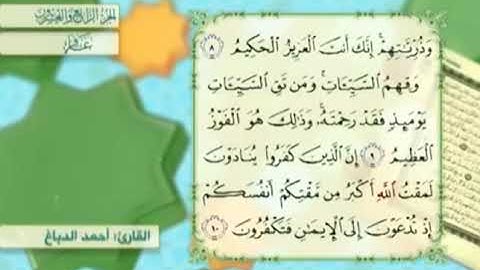 الجزء الرابع والعشرون
غافر
وَذُرِّيَّٰتِهِمْ ۚ إِنَّكَ أَنتَ ٱلْعَزِيزُ ٱلْحَكِيمُ ٨
وَقِهِمُ ٱلسَّيِّـَٔاتِ ۚ وَمَن تَقِ ٱلسَّيِّـَٔاتِ
يَوْمَئِذٍ فَقَدْ رَحِمْتَهُۥ ۚ وَذَٰلِكَ هُوَ ٱلْفَوْزُ
ٱلْعَظِيمُ ٩ إِنَّ ٱلَّذِينَ كَفَرُوا۟ يُنَادَوْنَ
لَمَقْتُ ٱللَّهِ أَكْبَرُ مِن مَّقْتِكُمْ أَنفُسَكُمْ
إِذْ تُدْعَوْنَ إِلَى ٱلْإِيمَٰنِ فَتَكْفُرُونَ ١٠
القارئ: أحمد الدباغ